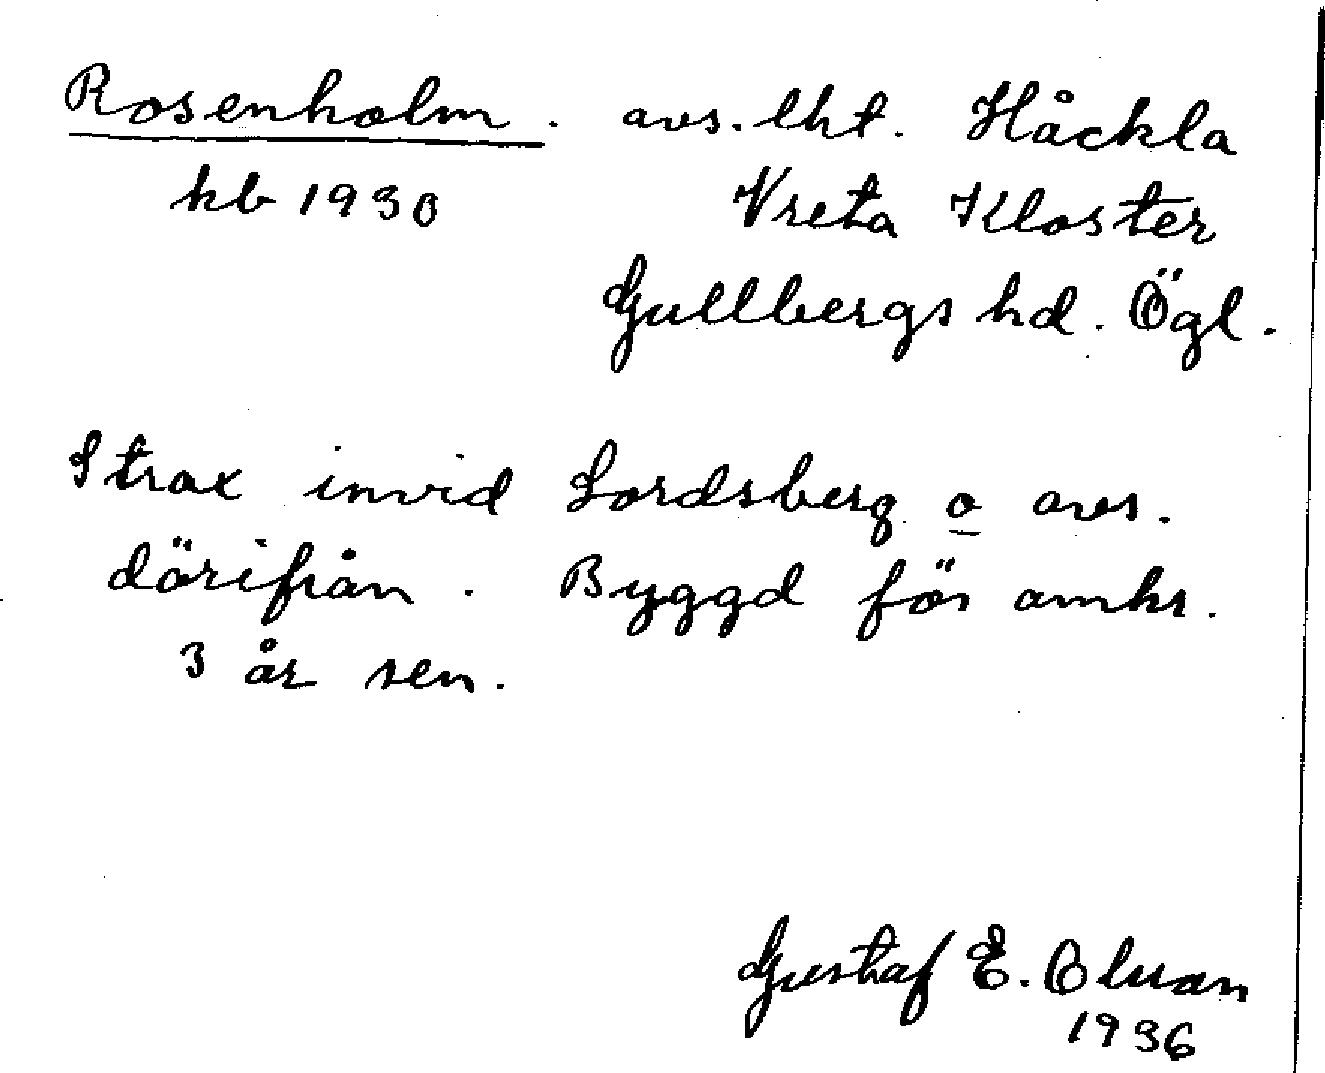 Rosenholm. avs. lht. Håckla
kb 1930 Vreta Kloster
Gullbergs hd. Ögl.
Strax invid Lordsberg o avs.
därifrån. Byggd för omkr.
3 år sen.
Gustaf E.
1936